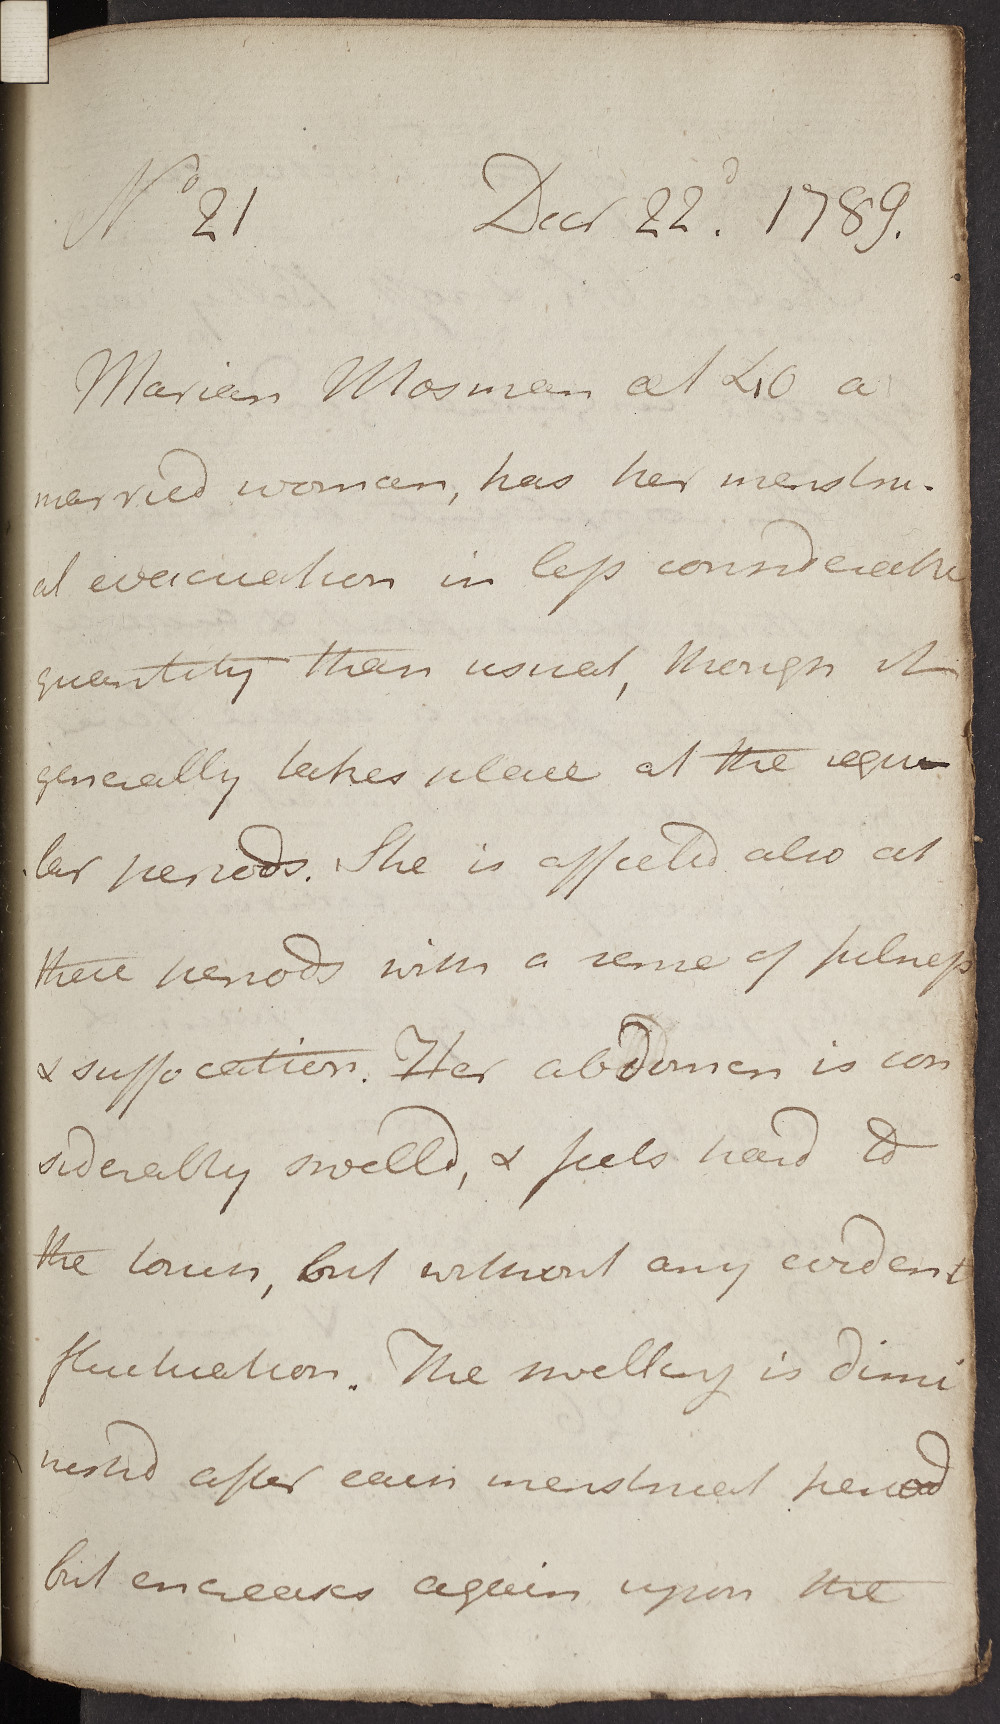 No 21 Decr 22d. 1789.
Marian Mosman aet 40 a
married woman, has her menstru-
al evacuation in less considerable
quantity than usual, though it
generally takes place at the regu-
lar periods. She is affected also at
these periods with a sense of fulness
& suffocation. Her abdomen is con
siderably swelld, & feels hard to
the touch, but without any evident
fluctuation. The swelling is dimi
nishd after each menstrual period
but encreases again upon the